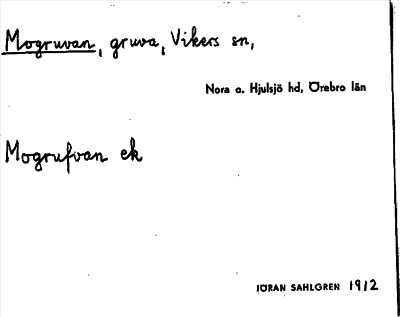 Mogruvan, gruva, Vikers sn,
Nora o. Hjulsjö hd, Örebro län
Mogrufvan ek
JÖRAN SAHLGREN 1912